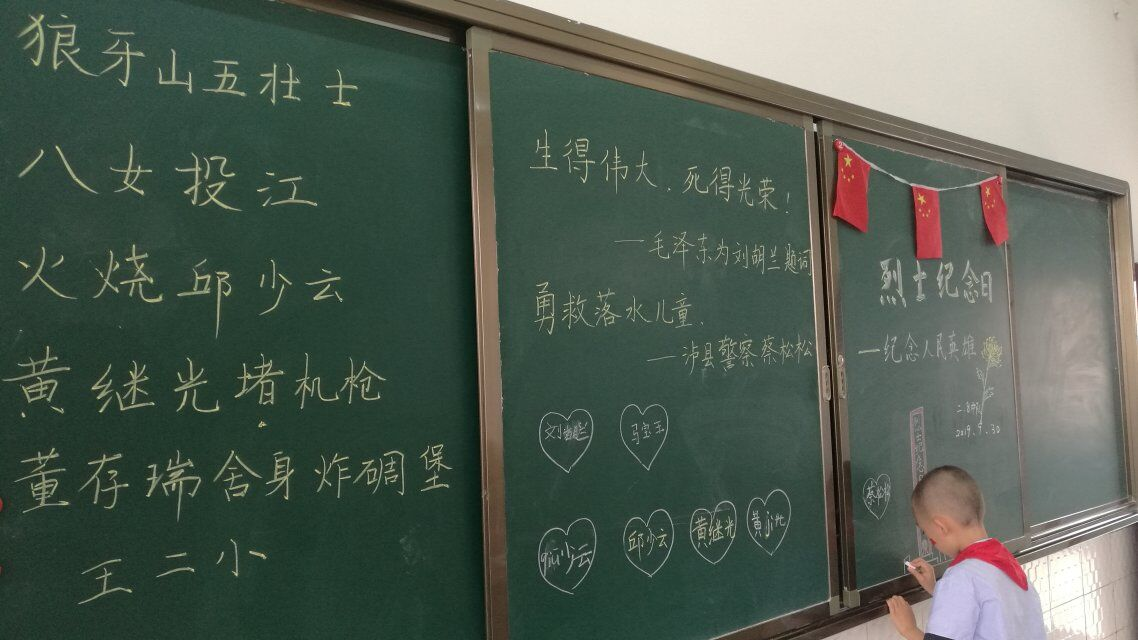 狼牙山五壮士
八女投江
火烧邱少云
黄继光堵机枪
董存瑞舍身炸碉堡
王二小
生得伟大、死得光荣!
—毛泽东为刘胡兰题词
勇救落水儿童、
—沛县警察蔡松松
刘胡兰
马宝玉
qiū少云
邱少云
黄继光
烈士纪念日
—纪念人民英雄
2019.9.30
蔡松松